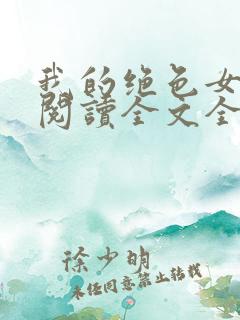 我的绝色女
阅讀全文全
徐少明
未经同意禁止转载